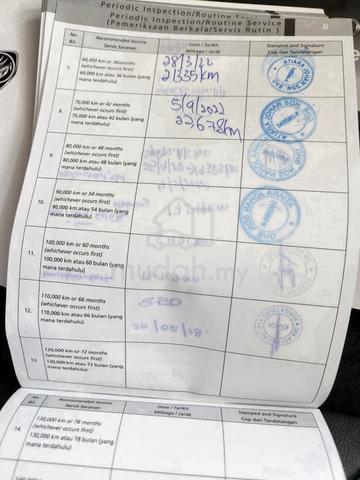 Periodic Inspection/Routine
Periodic Inspection/Routine Service
(Pemeriksaan Berkala/Servis Rutin)
No.
Bil.
Recommended Service
Servis Saranan
Date / Tarikh
Mileage / Jarak
Stamped and Signature
Cop dan Tandatangan
7.
60,000 km or 36months
(whichever occurs first)
60,000 km atau 36 bulan (yang
mana terdahulu)
28/3/22
21335km
8.
70,000 km or 42 months
(whichever occurs first)
70,000 km atau 42 bulan (yang
mana terdahulu)
5/9/2022
22,678km
9.
80,000 km or 48 months
(whichever occurs first)
80,000 km atau 48 bulan (yang
mana terdahulu)
10.
90,000 km or 54 months
(whichever occurs first)
90,000 km atau 54 bulan (yang
mana terdahulu)
11.
100,000 km or 60 months
(whichever occurs first)
100,000 km atau 60 bulan (yang
mana terdahulu)
mudah.my
12.
110,000 km or 66 months
(whichever occurs first)
110,000 km atau 66 bulan (yang
mana terdahulu)
13.
120,000 km or 72 months
(whichever occurs first)
120,000 km atau 72 bulan (yang
mana terdahulu)
No.
Bil.
Recommended Service
Servis Saranan
Date / Tarikh
Mileage / Jarak
Stamped and Signature
Cop dan Tandatangan
14.
130,000 km or 78 months
(whichever occurs first)
130,000 km atau 78 bulan (yang
mana terdahulu)